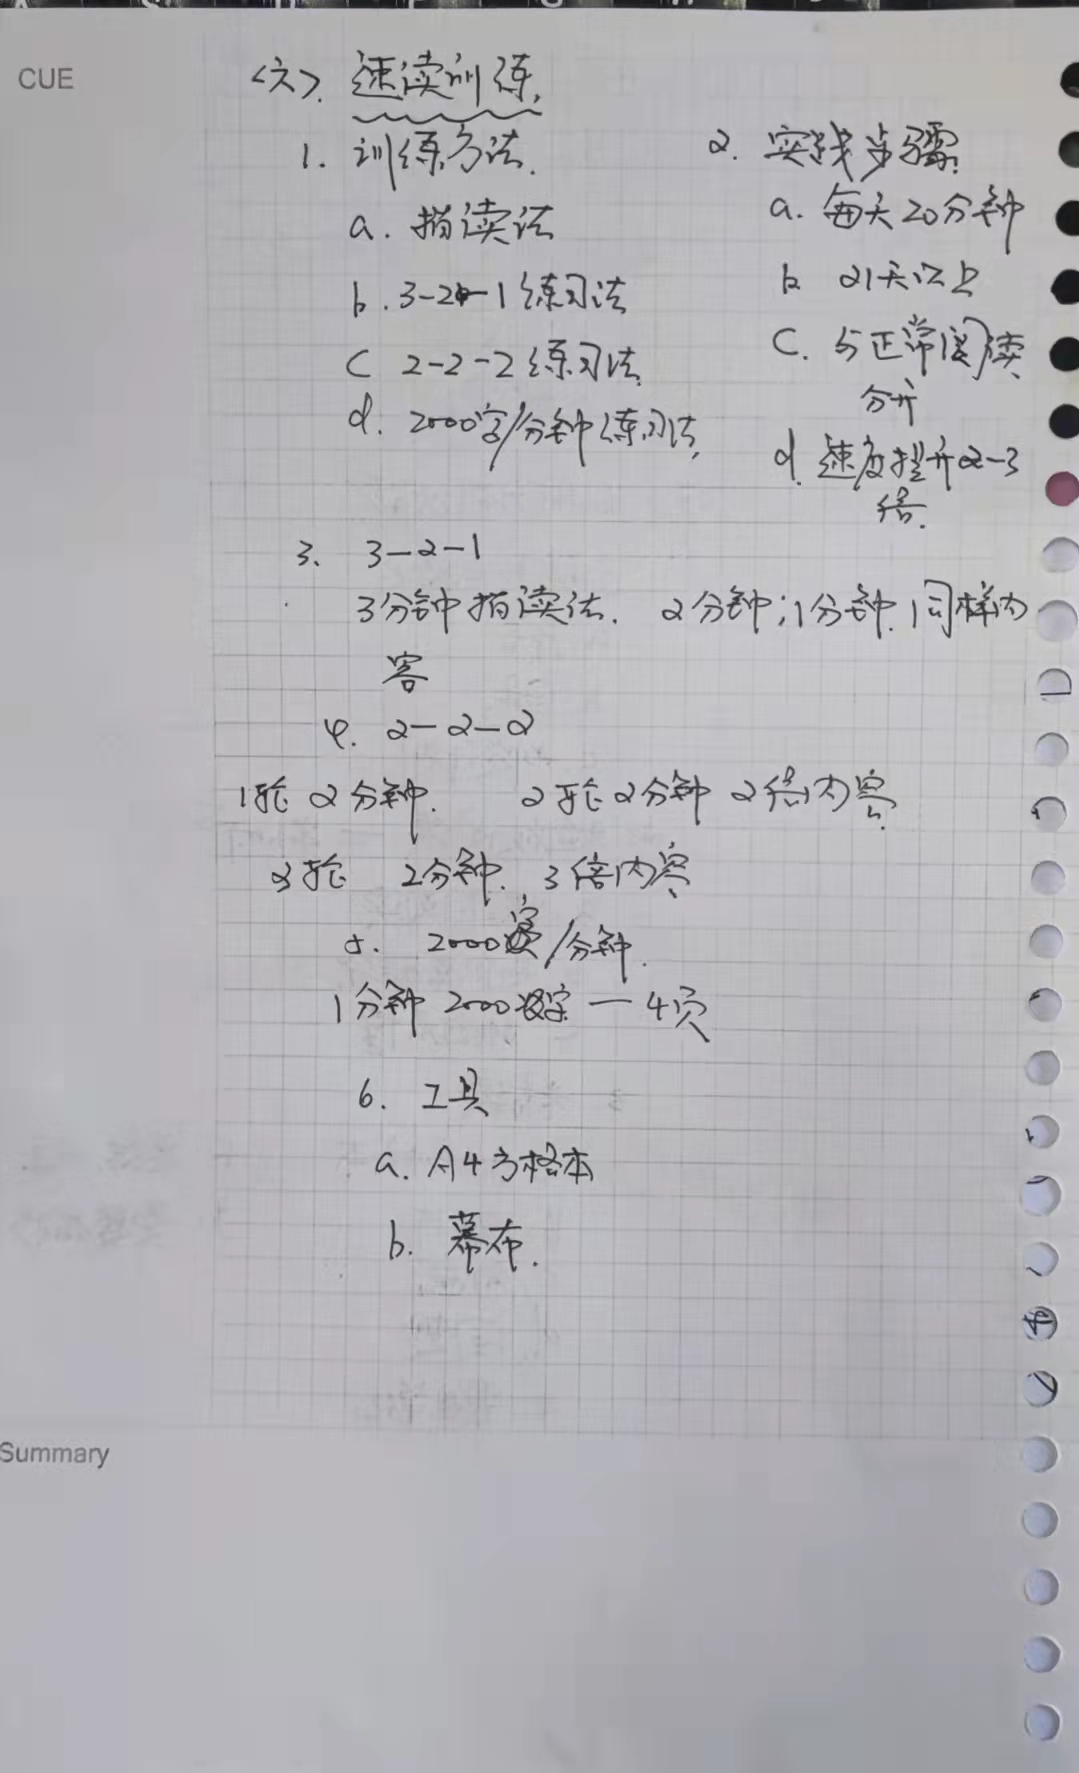 CUE
<六>. 速读训练.
1. 训练方法.
a. 指读法
b. 3-2-1练习法
C 2-2-2练习法
d. 2000字/分钟练习法.
2. 实践步骤.
a. 每天20分钟
b 21天以上
C. 与正常阅读
分开
d. 速度提升2-3
倍.
3. 3-2-1
3分钟指读法. 2分钟;1分钟.同样内
容
4. 2-2-2
1轮 2分钟. 2轮2分钟 2倍内容
3轮 2分钟. 3倍内容
5. 2000字/分钟.
1分钟 2000字 — 4页
6. 工具
a. A4方格本
b. 幕布.
Summary